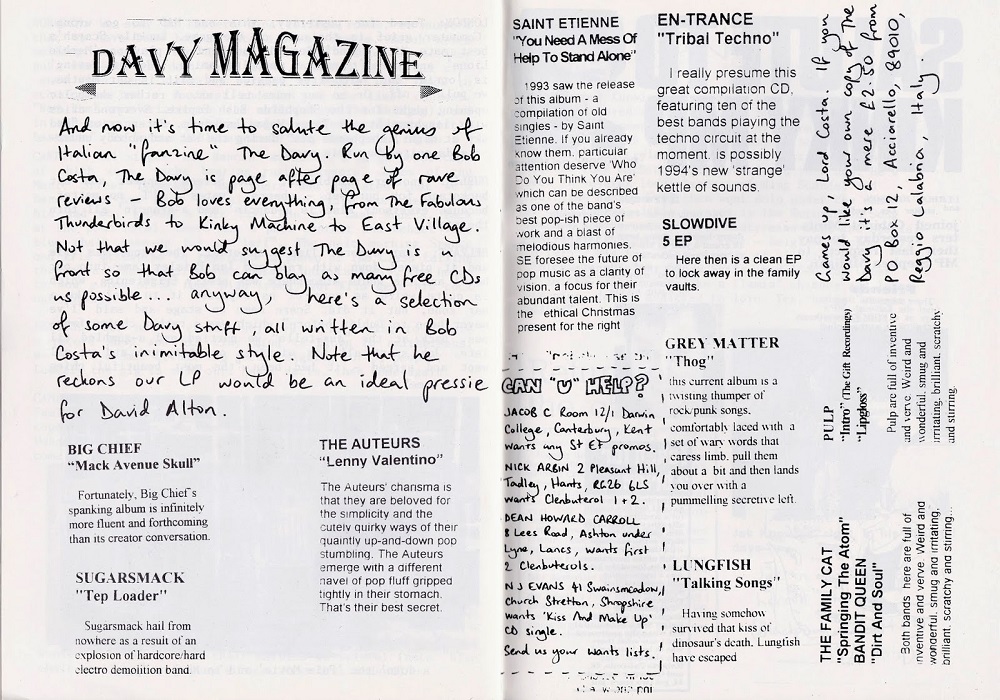 DAVY MAGAZINE
And now it's time to salute the genius of
Italian "fanzine" The Davy. Run by one Bob
Costa, The Davy is page after page of rave
reviews – Bob loves everything, from The Fabulous
Thunderbirds to Kinky Machine to East Village.
Not that we would suggest The Davy is a
front so that Bob can blag as many free CDs
as possible... anyway, here's a selection
of some Davy stuff, all written in Bob
Costa's inimitable style. Note that he
reckons our LP would be an ideal pressie
for David Alton.
BIG CHIEF
"Mack Avenue Skull"
Fortunately, Big Chief's
spanking album is infinitely
more fluent and forthcoming
than its creator conversation.
SUGARSMACK
"Tep Loader"
Sugarsmack hail from
nowhere as a result of an
explosion of hardcore/hard
electro demolition band.
THE AUTEURS
"Lenny Valentino"
The Auteurs' charisma is
that they are beloved for
the simplicity and the
cutely quirky ways of their
quaintly up-and-down pop
stumbling. The Auteurs
emerge with a different
navel of pop fluff gripped
tightly in their stomach.
That's their best secret.
SAINT ETIENNE
"You Need A Mess Of
Help To Stand Alone"
1993 saw the release
of this album - a
compilation of old
singles - by Saint
Etienne. If you already
know them, particular
attention deserve 'Who
Do You Think You Are'
which can be described
as one of the band's
best pop-ish piece of
work and a blast of
melodious harmonies.
SE foresee the future of
pop music as a clarity of
vision, a focus for their
abundant talent. This is
the ethical Christmas
present for the right
CAN "U" HELP?
JACOB C Room 12/1 Darwin
College, Canterbury, Kent
wants any St Et promos.
NICK ARBIN 2 Pleasant Hill,
Tadley, Hants, RG26 6LS
wants Clenbuterol 1+2.
DEAN HOWARD CARROLL
8 Lees Road, Ashton under
Lyne, Lancs, wants first
2 Clenbuterols.
NJ EVANS 41 Swainsmeadow,
Church Stretton, Shropshire
wants 'Kiss And Make Up'
CD single.
Send us your wants lists.
EN-TRANCE
"Tribal Techno"
I really presume this
great compilation CD,
featuring ten of the
best bands playing the
techno circuit at the
moment. is possibly
1994's new 'strange'
kettle of sounds.
SLOWDIVE
5 EP
Here then is a clean EP
to lock away in the family
vaults.
GREY MATTER
"Thog"
this current album is a
twisting thumper of
rock/punk songs.
comfortably laced with a
set of wary words that
caress limb. pull them
about a bit and then lands
you over with a
pummelling secretive left.
LUNGFISH
"Talking Songs"
Having somehow
survived that kiss of
dinosaur's death. Lungfish
have escaped
Games up, Lord Costa. If you
would like your own copy of The
Davy it's a mere £2.50 from
PO Box 12, Acciarello, 89010,
Reggio Calabria, Italy.
PULP
"Intro" (The Gift Recordings)
"Lipgloss"
Pulp are full of inventive
and verve. Weird and
wonderful, smug and
irritating, brilliant. scratchy
and stirring.
THE FAMILY CAT
"Springing The Atom"
BANDIT QUEEN
"Dirt And Soul"
Both bands here are full of
inventive and verve. Weird and
wonderful. smug and irritating,
brilliant. scratchy and stirring...